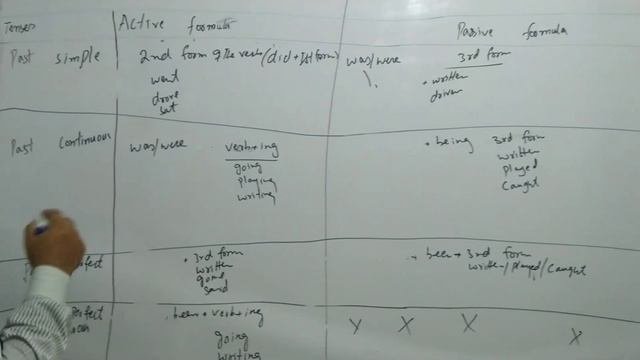 Tenses Active formula Passive formula
Past simple 2nd form of the verb (did + Ist form) was/were 3rd form
went + written
drove driven
sat
Past Continuous was/were verb+ing + being 3rd form
going written
playing played
writing caught
+ 3rd form + been + 3rd form
written written/played/caught
gone
said
been + verb+ing X X X X
going
writing